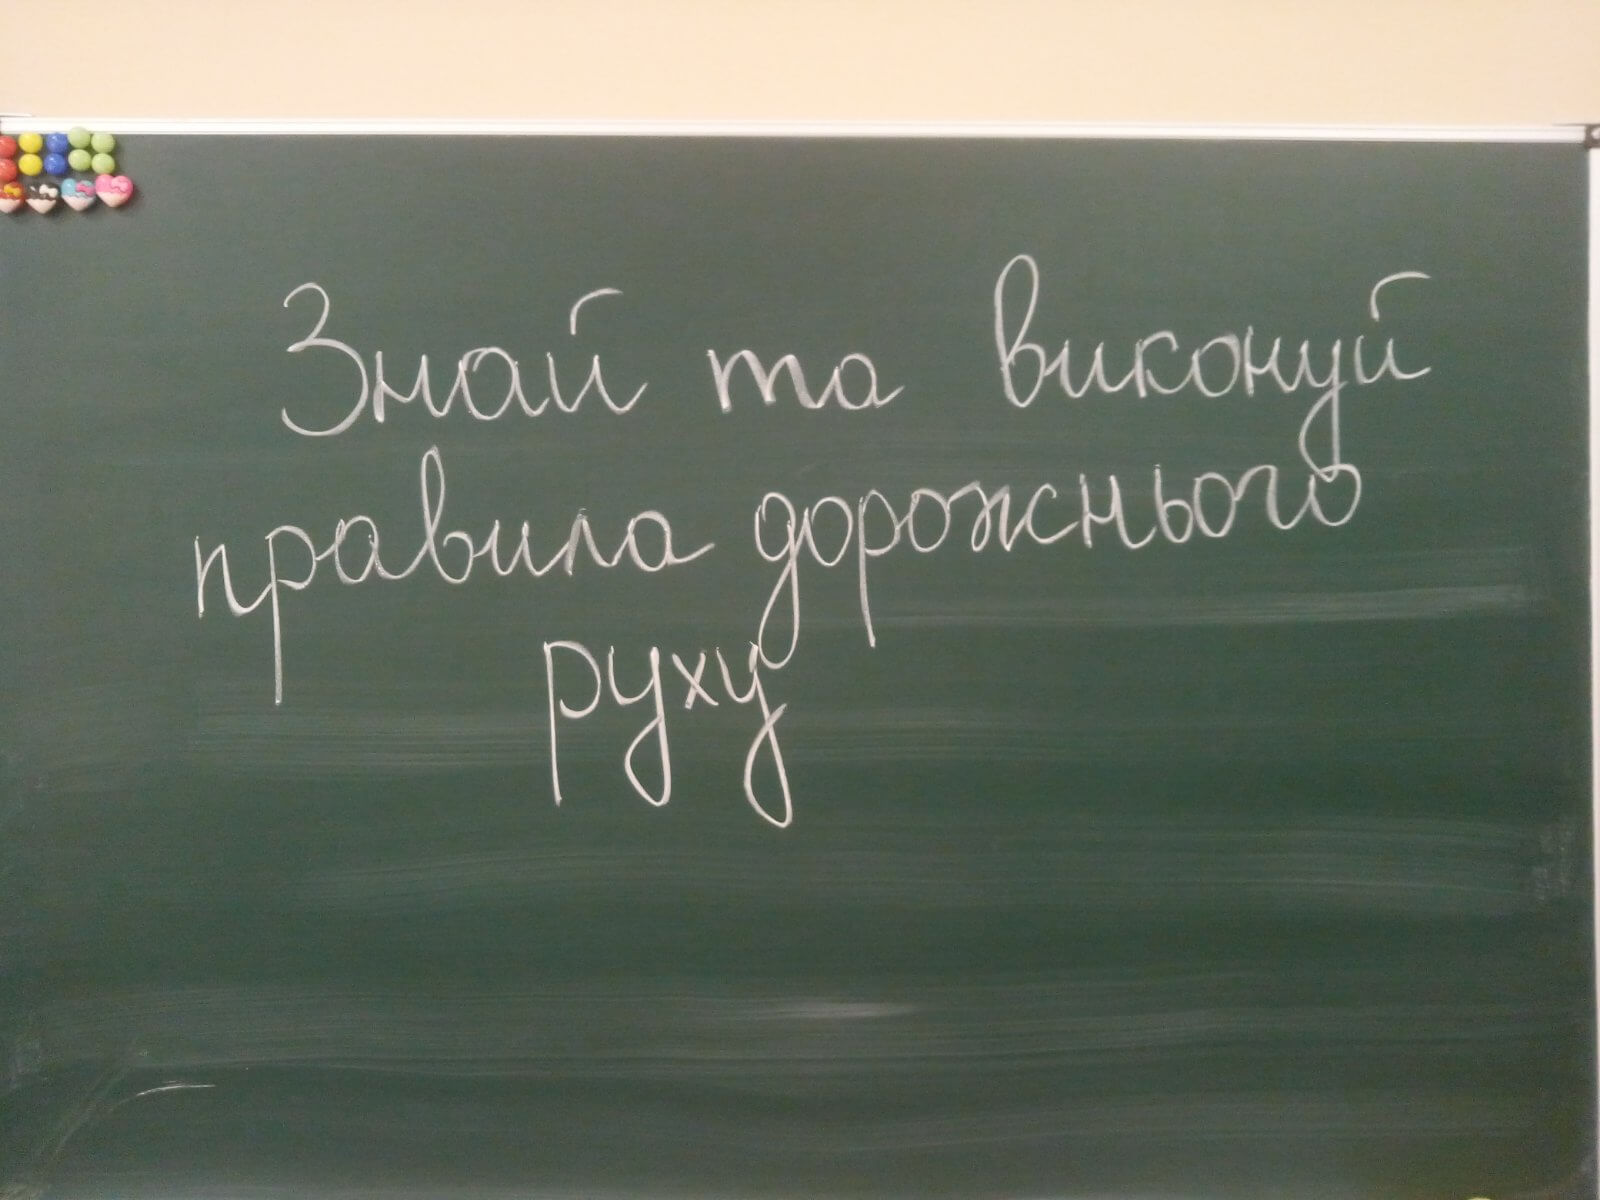 Знай та виконуй
правила дорожнього
руху